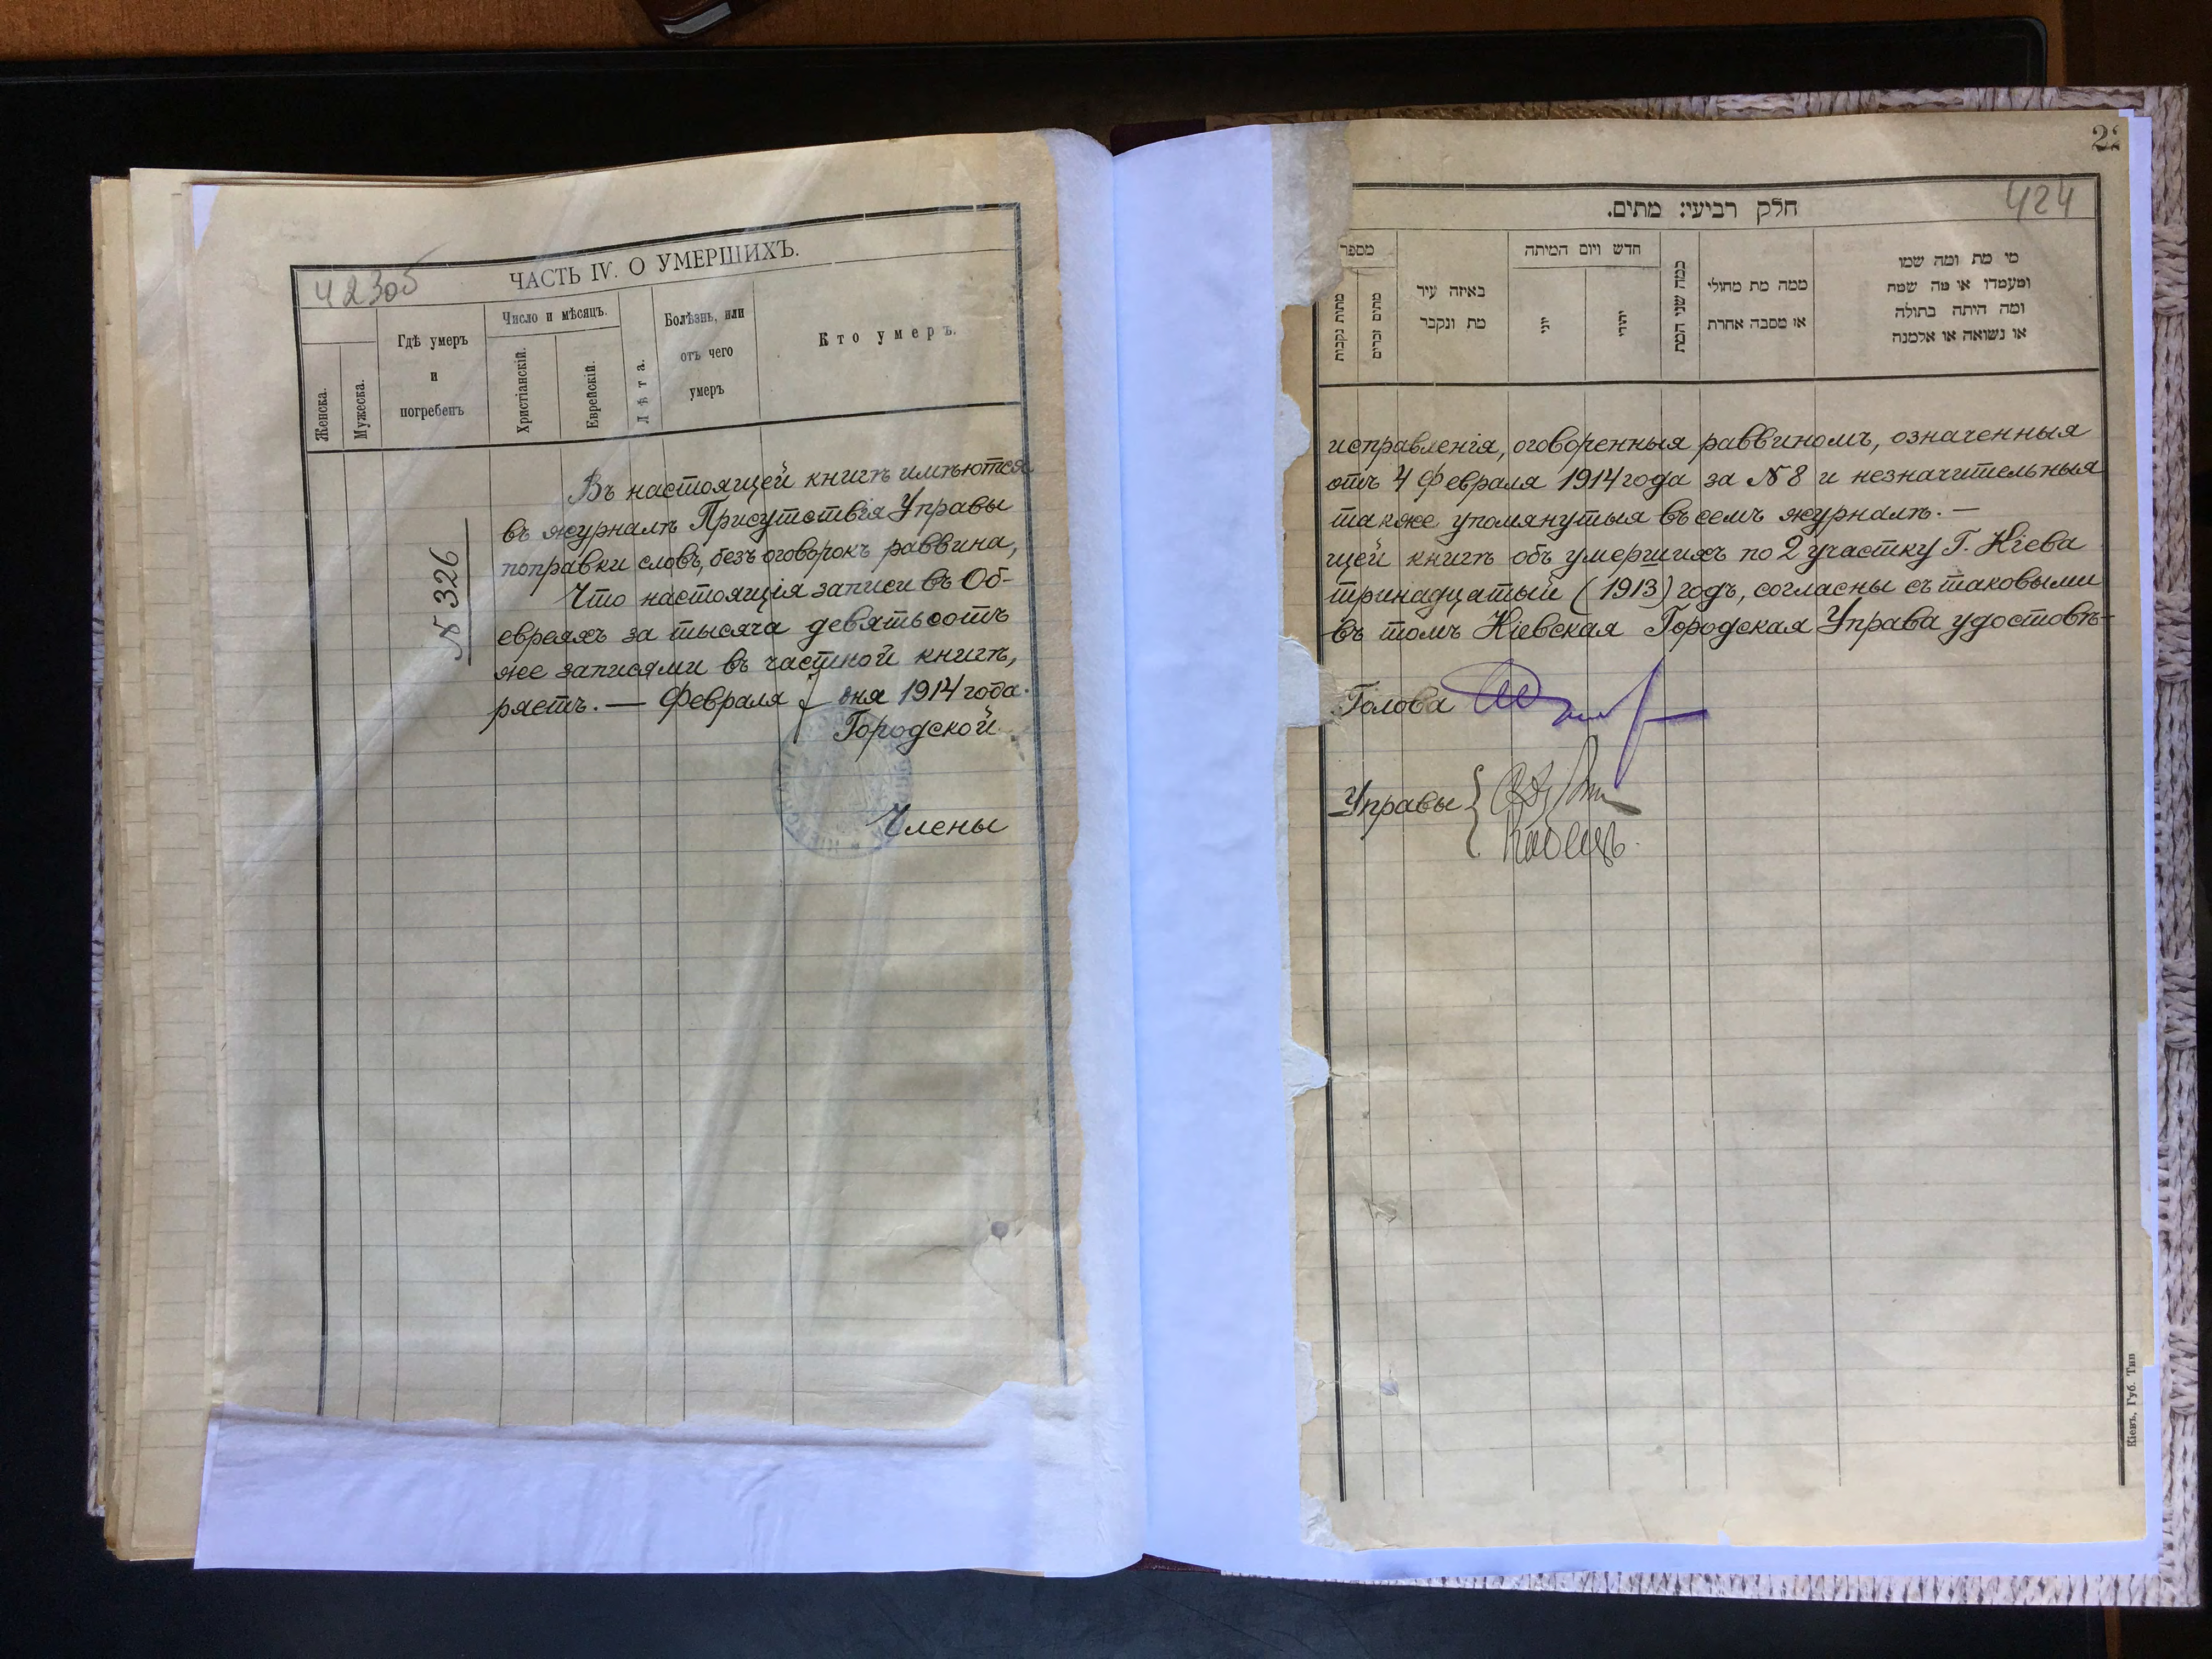 423об
ЧАСТЬ IV. О УМЕРШИХЪ.
Женска.
Мужеска.
Гдѣ умеръ
и
погребенъ
Число и мѣсяцъ.
Христіанскій.
Еврейскій.
Лѣта.
Болѣзнь, или
отъ чего
умеръ
Кто умеръ.
№ 326
Въ настоящей книгѣ имѣются
въ журналѣ Присутствія Управы
поправки словъ, безъ оговорокъ раввина,
Что настоящія записи въ Об-
евреяхъ за тысяча девятьсотъ
же записями въ частной книгѣ,
ряетъ. — Февраля дня 1914 года.
Городской
Члены
22
424
חלק רביעי: מתים.
מספר
מתות נקבות
מתים זכרים
באיזה עיר
מת ונקבר
חדש ויום המיתה
יוני
יהודי
כמה שני המת
ממה מת מחולי
או מסבה אחרת
מי מת ומה שמו
ומעמדו או מה שמה
ומה היתה בתולה
או נשואה או אלמנה
исправленія, оговоренныя раввиномъ, означенныя
отъ 4 Февраля 1914 года за № 8 и незначительныя
также упомянутыя въ семъ журналѣ. —
щей книгѣ объ умершихъ по 2 участку Г. Кіева
тринадцатый (1913) годъ, согласны съ таковыми
въ томъ Кіевская Городская Управа удостовѣ-
Голова
Управы
Кіевъ, Губ. Тип